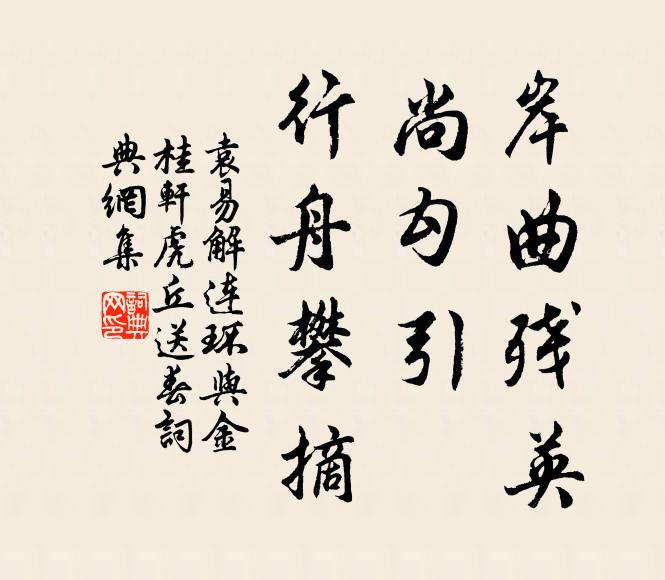 岸曲残英
尚勾引
行舟攀摘
袁易解连环與金
桂軒虎丘送春詞
典網集
詞典网印